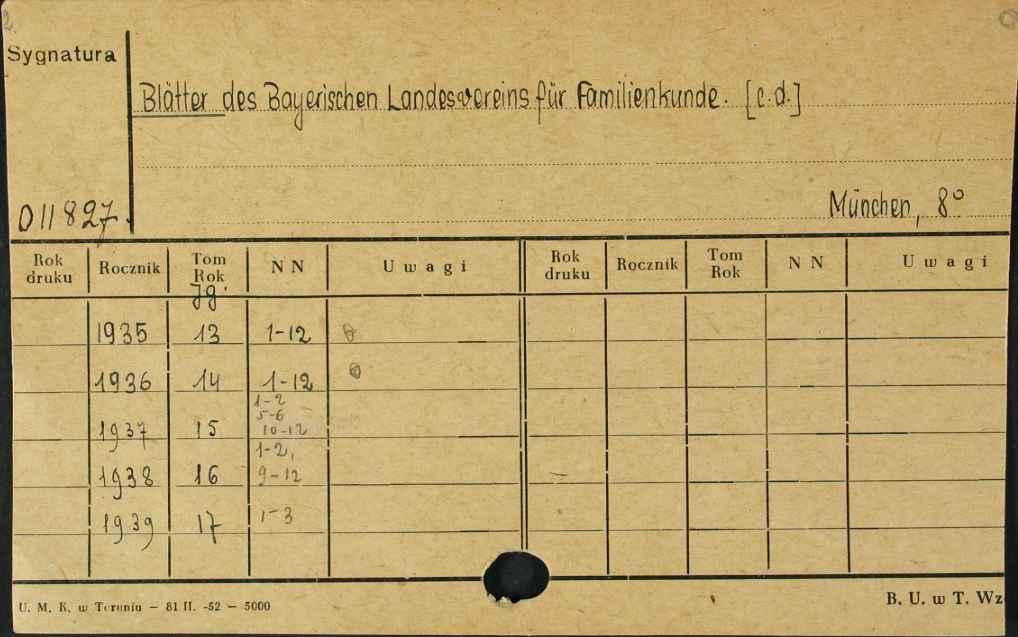 2.
Sygnatura
Blätter des Bayerischen Landesvereins für Familienkunde. [c.d.]
011827.
München, 8°
Rok druku Rocznik Tom Rok NN Uwagi Rok druku Rocznik Tom Rok NN Uwagi
Jg.
1935 13 1-12
1936 14 1-12
1937 15 1-2 5-6 10-12
1938 16 1-2, 9-12
1939 17 1-3
U. M. K. w Toruniu — 81 II. -52 — 5000
B. U. w T. Wz